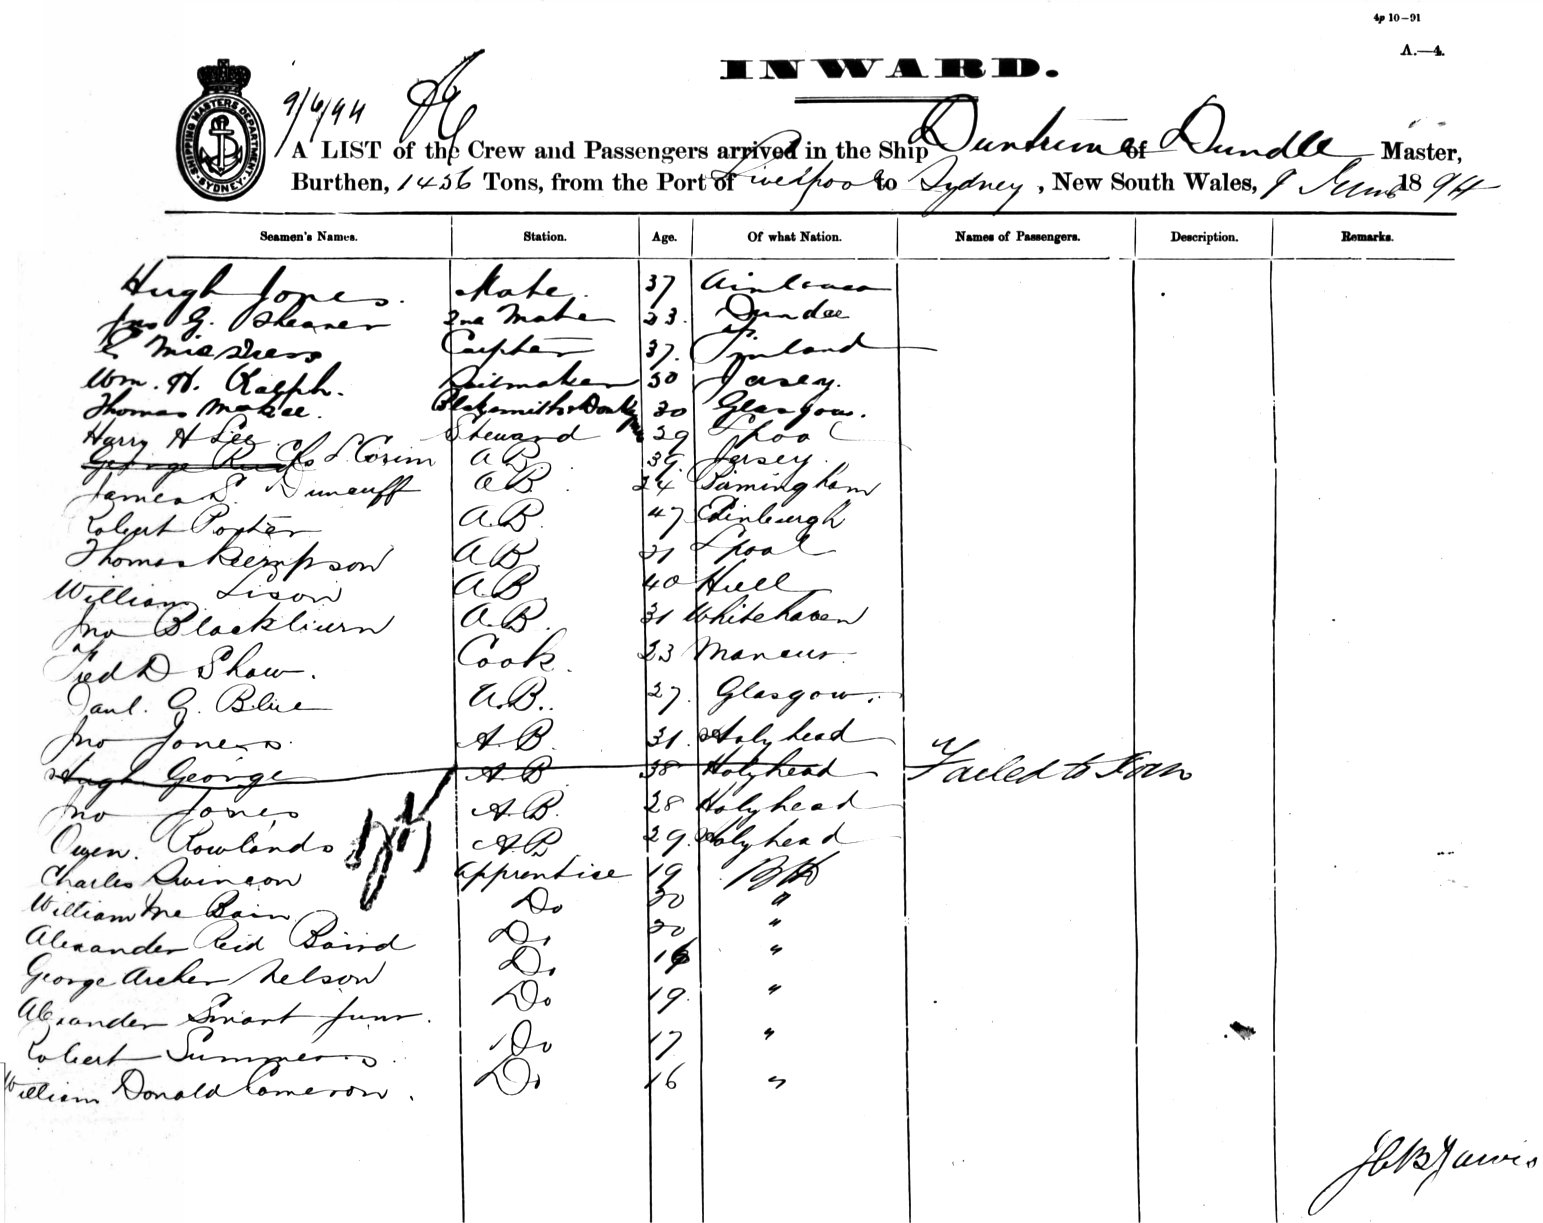 4p 10–91
A.—4.
INWARD.
9/6/94
SHIPPING MASTERS DEPARTMENT SYDNEY
A LIST of the Crew and Passengers arrived in the Ship Duntrune of Dundee Master,
Burthen, 1456 Tons, from the Port of Liverpool to Sydney, New South Wales, 9 June 1894
Seamen's Names. Station. Age. Of what Nation. Names of Passengers. Description. Remarks.
Hugh Jones. Mate. 37
Jas G. Shearer 2nd Mate 23. Dundee
Carpter 37. Finland
Wm. H. Ralph. Sailmaker 30 Jersey.
Thomas McKee. Blacksmith & Donkyman 30 Glasgow.
Harry H Lee Steward 29 Lpool
George Chs L. AB 39. Jersey.
James S. Duncuff AB. 24 Birmingham
Robert Porter A.B. 47 Edinburgh
Thomas Kempson AB 21 Lpool
William Sison A.B. 40 Hull
Jno Blackburn A.B. 31 Whitehaven
Fred D Shaw. Cook. 23
Danl. G. Blue A.B.. 27. Glasgow.
Jno Jones. A.B. 31. Holyhead
Hugh George A B 38 Holyhead Failed to Join
Jno Jones A.B. 28 Holyhead
Owen. Rowlands A.B 29. Holyhead
Charles Swinson Apprentice 19
William Mc Bain Do 20 "
Alexander Reid Baird Do 20 "
George Archer Nelson Do 16 "
Alexander Smart Junr. Do 19. "
Robert Summers Do 17 "
William Donald Cameron. Do 16 "